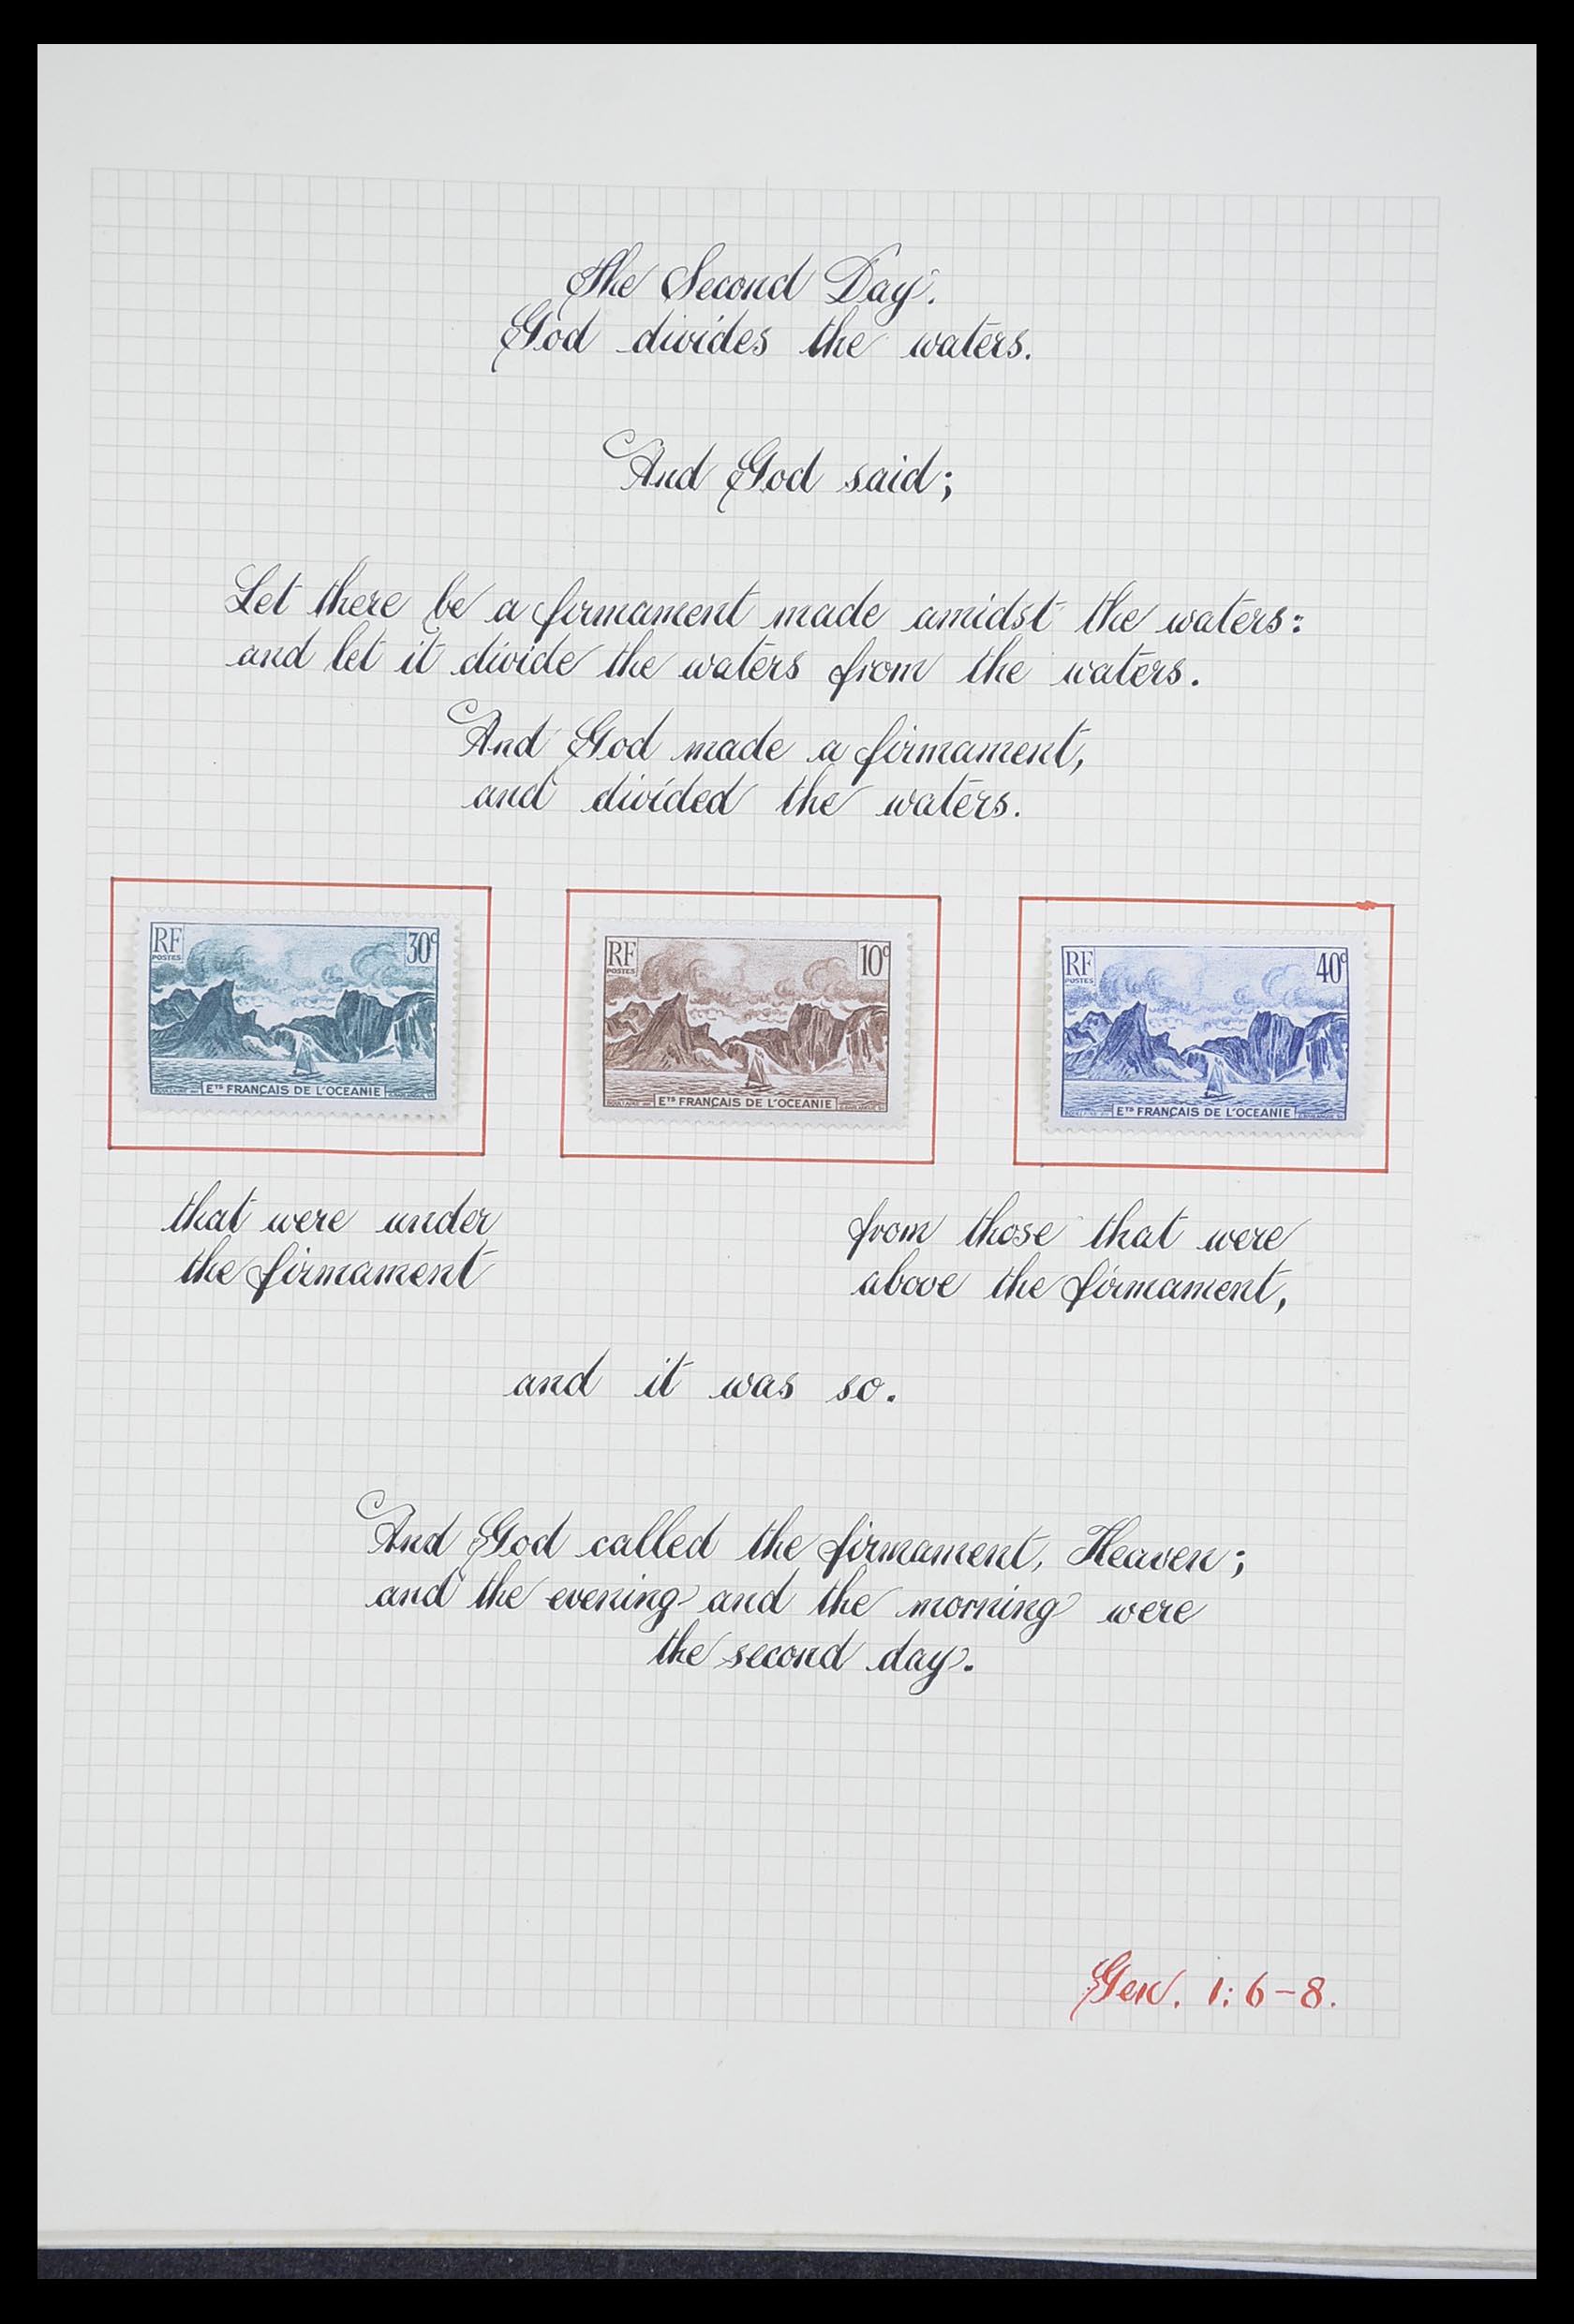 The Second Day.
God divides the waters.
And God said;
Let there be a firmament made amidst the waters:
and let it divide the waters from the waters.
And God made a firmament,
and divided the waters.
RF
POSTES
30c
ETS FRANÇAIS DE L'OCEANIE
RF
POSTES
10c
ETS FRANÇAIS DE L'OCEANIE
RF
POSTES
40c
ETS FRANÇAIS DE L'OCEANIE
that were under
the firmament
from those that were
above the firmament,
and it was so.
And God called the firmament, Heaven;
and the evening and the morning were
the second day.
Gen. 1:6-8.